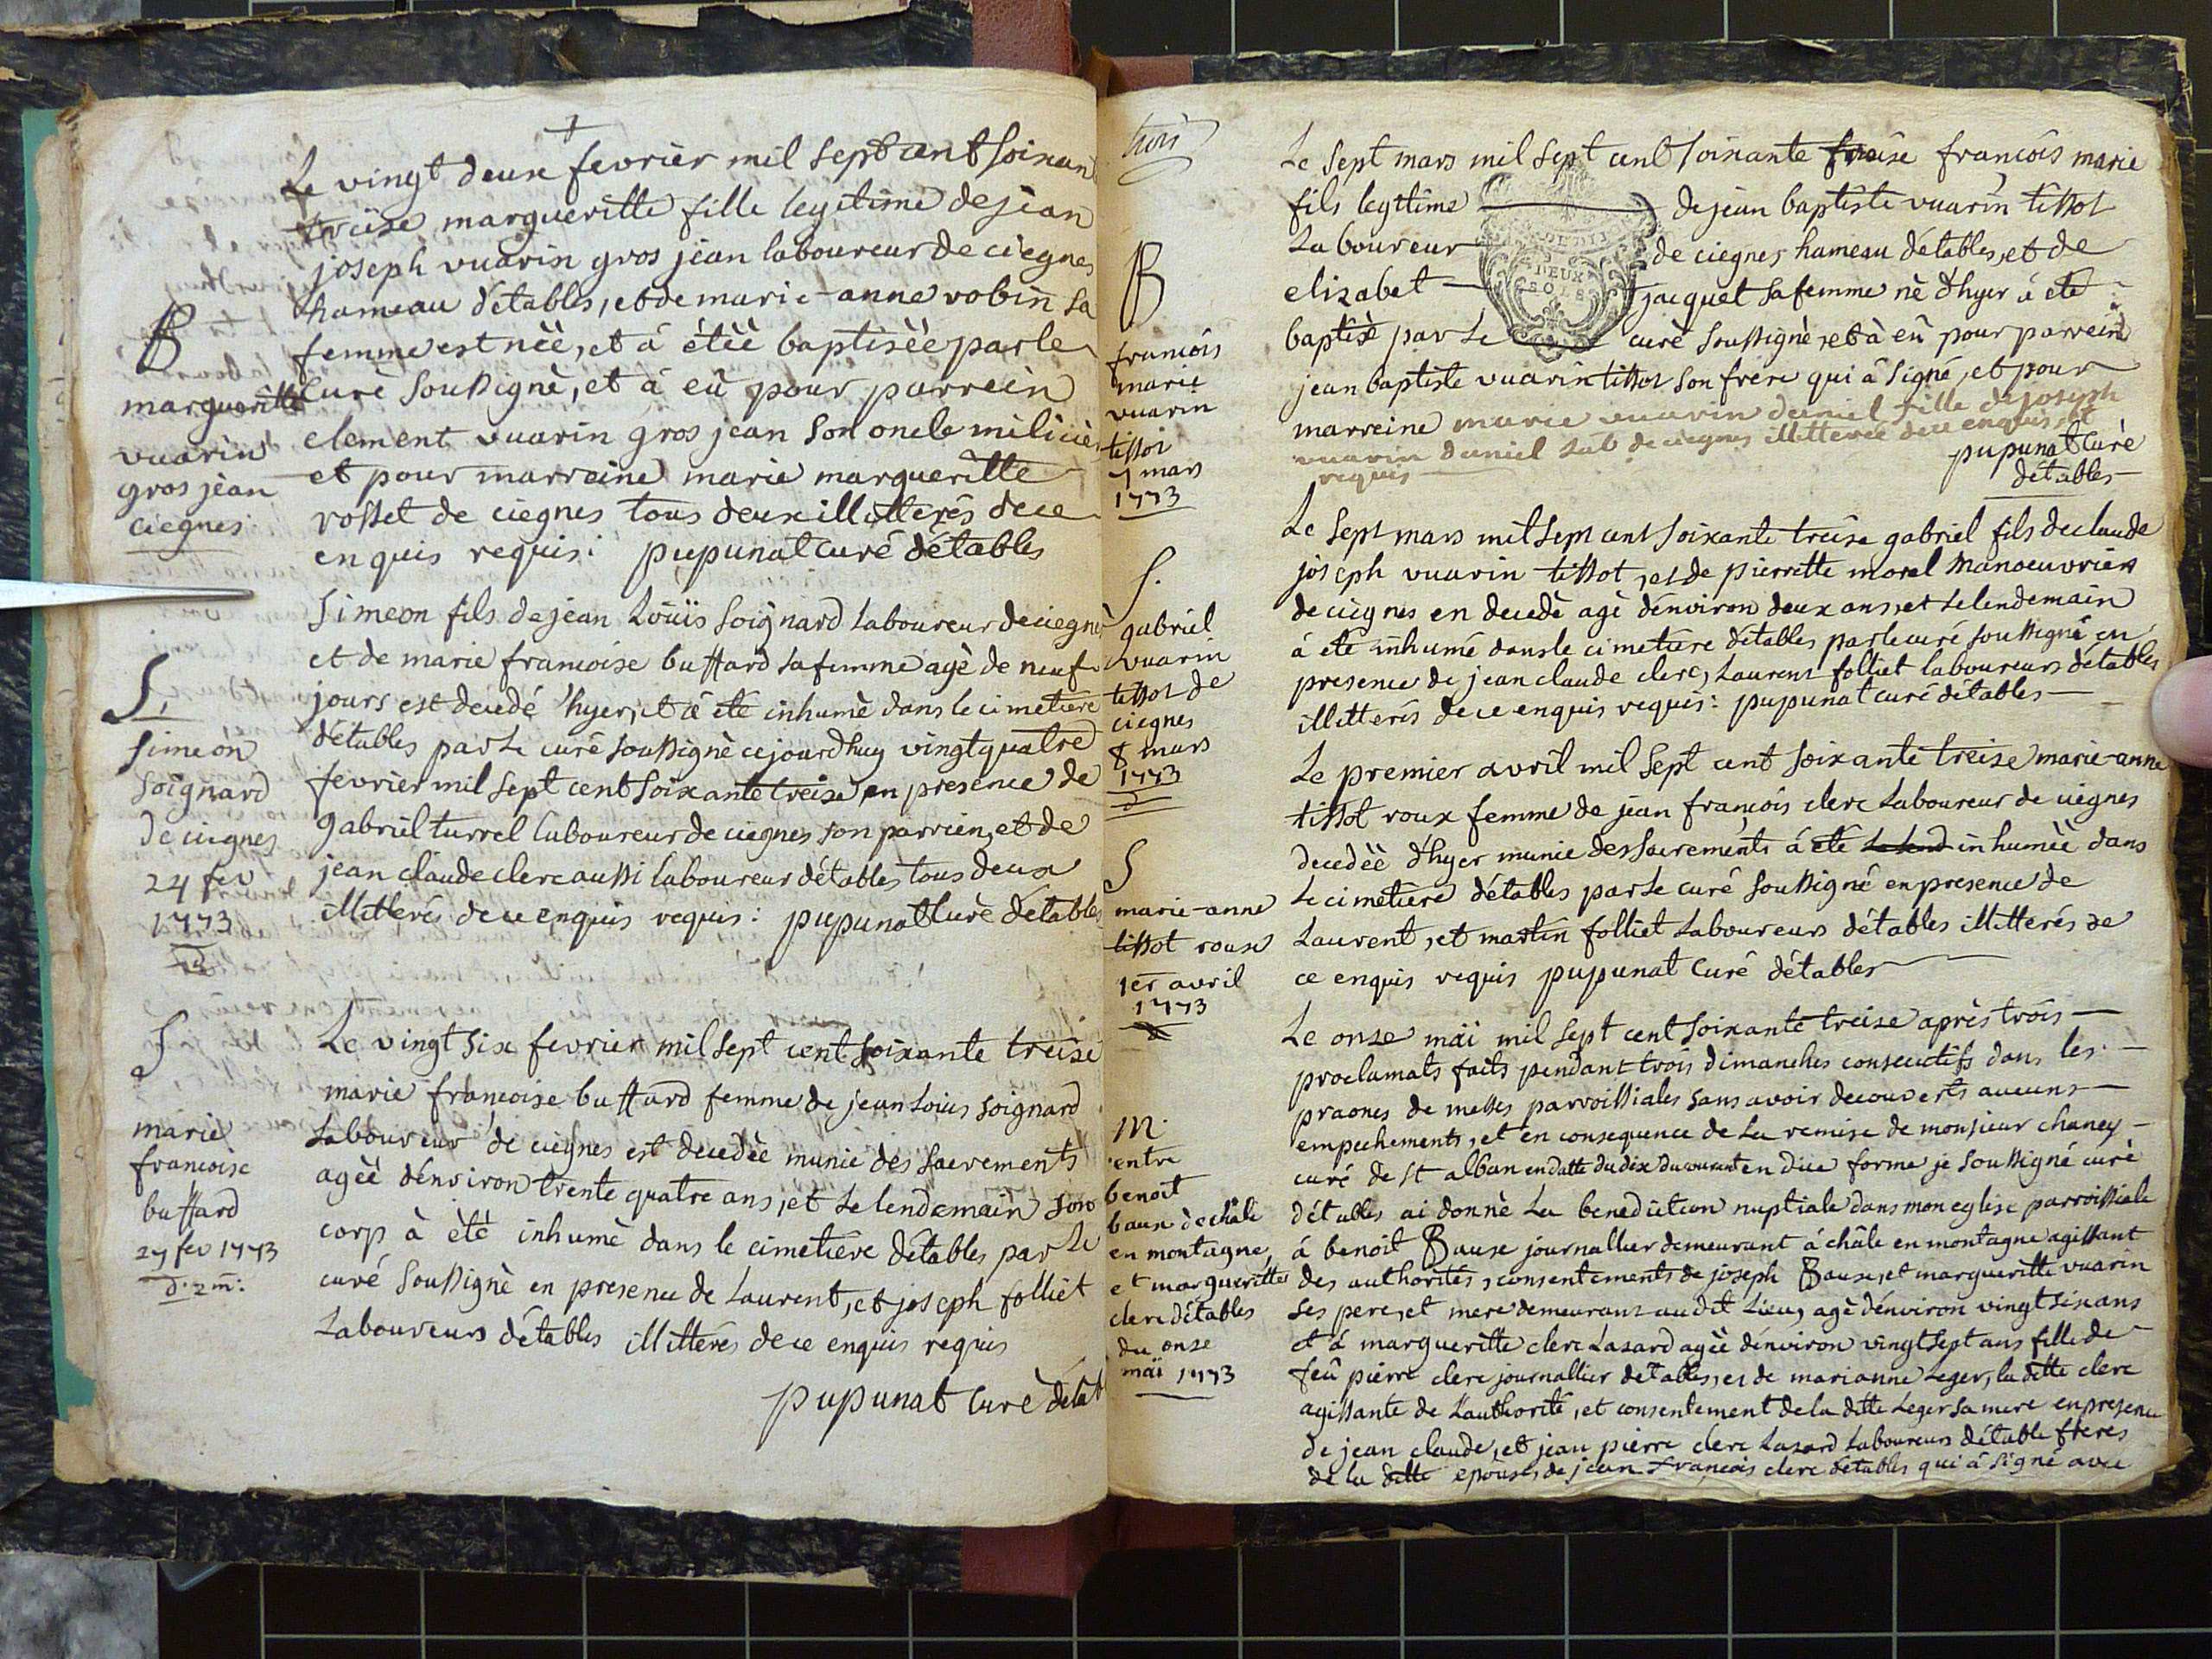 Le vingt deux fevrier mil sept cent soixan
treise margueritte fille legitime de jean
joseph vuarin gros jean laboureur de ciegnes
hameau détables, et de marie-anne robin sa
femme est nèè, et á étèè baptisèè par le
curè soussignè, et á eû pour parrein
clement vuarin gros jean son oncle milicie
et pour marreine marie margueritte
rosset de ciegnes tous deux illitterés de ce
enquis requis: pupunat curé détables
B
margueritte
vuarin
gros jean
ciegnes
simeon fils de jean Loüis soignard laboureur de ciegnes
et de marie francoise buffard sa femme agè de neuf
jours est decedé hyer, et á été inhumè dans le cimetiere
détables par Le curé soussignè cejourdhuy vingt quatre
fevrier mil sept cent soixante treise en presence de
gabriel turrel laboureur de ciegnes son parrien, et de
jean claude clerc aussi laboureur détables tous deux
illitterés de ce enquis requis: pupunat curè détables
S,
simeon
soignard
de ciegnes
24 fev
1773
S
marie
francoise
buffard
27 fev 1773
d. 2 m:
Le vingt six fevrier mil sept cent soixante treise
marie francoise buffard femme de jean Loüis soignard
Laboureur de ciegnes est decedèe munie des sacrements
agèè dénviron trente quatre ans, et Le lendemain son
corp à été inhumè dans le cimetiere détables par Le
curé soussignè en presence de Laurent, et joseph folliet
Laboureurs détables illitterés de ce enquis requis
pupunat curè détab
trois
B
francois
marie
vuarin
tissot
7 mars
1773
Le sept mars mil sept cent soixante treise francois marie
fils legitime de jean baptiste vuarin tissot
Laboureur de ciegnes hameau détables, et de
elizabet jacquet sa femme nè d'hyer á eté
baptisè par Le curè soussignè, et à eû pour parrein
jean baptiste vuarin tissot son frere qui á signé, et pour
marreine marie vuarin daniel fille de joseph
vuarin daniel lab de ciegnes illitterée de ce enquis et
requis
pupunat curè
détables
DEUX
SOLS
S.
gabriel
vuarin
tissot de
ciegnes
8 mars
1773
Le sept mars mil sept cent soixante treise gabriel fils de claude
joseph vuarin tissot, et de pierrette morel manoeuvriers
de ciegnes en decedè agè dénviron deux ans, et Le lendemain
á été inhumé dans le cimetiere détables par le curé soussigné en
presence de jean claude clerc, Laurent folliet laboureurs détables
illitterés de ce enquis requis: pupunat curé détables
S
marie-anne
tissot roux
1er avril
1773
Le premier avril mil sept cent soixante treise marie-anne
tissot roux femme de jean francois clerc Laboureur de ciegnes
decedèè d'hyer munie des sacrements á été inhumèè dans
Le cimetiere détables par Le curé soussigné en presence de
Laurent, et martin folliet Laboureurs détables illitterés de
ce enquis requis pupunat curé détables
M.
entre
benoit
baux de châle
en montagne,
et margueritte
clerc détables
du onse
mäi 1773
Le onse mäi mil sept cent soixante treise après trois
proclamats faits pendant trois dimanches consecutifs dans les
praones de messes parroissiales sans avoir decouverts aucuns
empechements, et en consequence de La remise de monsieur chaney
curé de st alban en datte du dix du courant en due forme je soussigné curè
détables ai donnè La benediction nuptiale dans mon eglise parroissiale
á benoit Bause journallier demeurant á châle en montagne agissant
des authorités, consentements de joseph Bause, et margueritte vuarin
ses pere, et mere demeurans audit Lieu, agè dénviron vingt six ans
et á margueritte clerc Lazard agèè dénviron vingt sept ans fille de
feû pierre clerc journallier détables, et de marianne Leger, la ditte clerc
agissante de L'authorité, et consentement de la ditte Leger sa mere en presence
de jean claude, et jean pierre clerc Lazard Laboureurs détable freres
de la ditte epouse, de jean francois clerc détables qui á signé avec